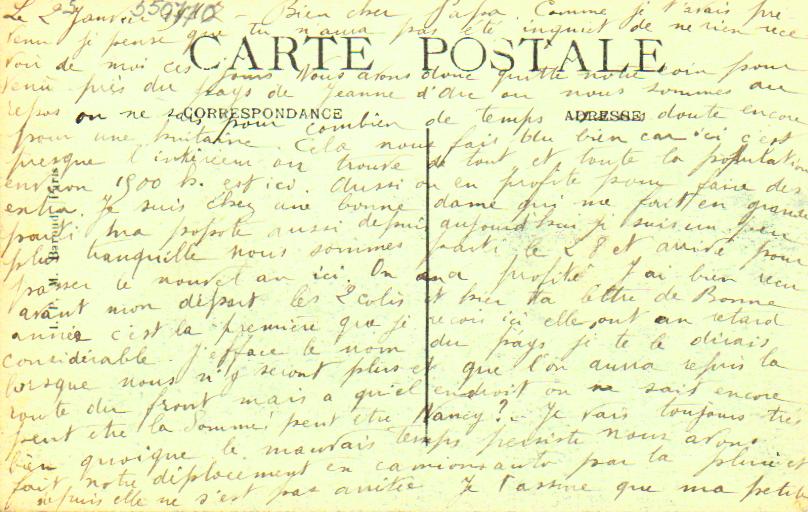 Le 2 Janvier 1917 - Bien cher Papa. Comme je t'avais pré-
venu je pense que tu n'aura pas été inquiet de ne rien rece
CARTE POSTALE
voir de moi ces jours Nous avons donc quitté notre coin pour
venir près du pays de Jeanne d'Arc ou nous sommes au
repos on ne sait pour combien de temps sans doute encore
CORRESPONDANCE ADRESSE
pour une huitaine. Cela nous fait du bien car ici c'est
presque l'intérieur on trouve de tout et toute la population
environ 1500 h. est ici. Aussi on en profite pour faire des
I. P. M. Paris
Je suis chez une bonne dame qui me fait en grande
parti ma popote aussi depuis aujourd'hui je suis un peu
plus tranquille nous sommes parti le 28 et arrivé pour
passer le nouvel an ici. On en a profité J'ai bien reçu
avant mon départ les 2 colis et hier ta lettre de Bonne
année c'est la première que je reçois ici elle ont un retard
considérable. J'efface le nom du pays je te le dirais
lorsque nous n'y seront plus et que l'on aura repris la
route du front mais a quel endroit on ne sait encore
peut etre la Somme peut etre Nancy? - Je vais toujours très
bien quoique le mauvais temps persiste nous avons
fait notre déplacement en camions auto par la pluie et
depuis elle ne s'est pas arrêtée Je t'assure que ma petite